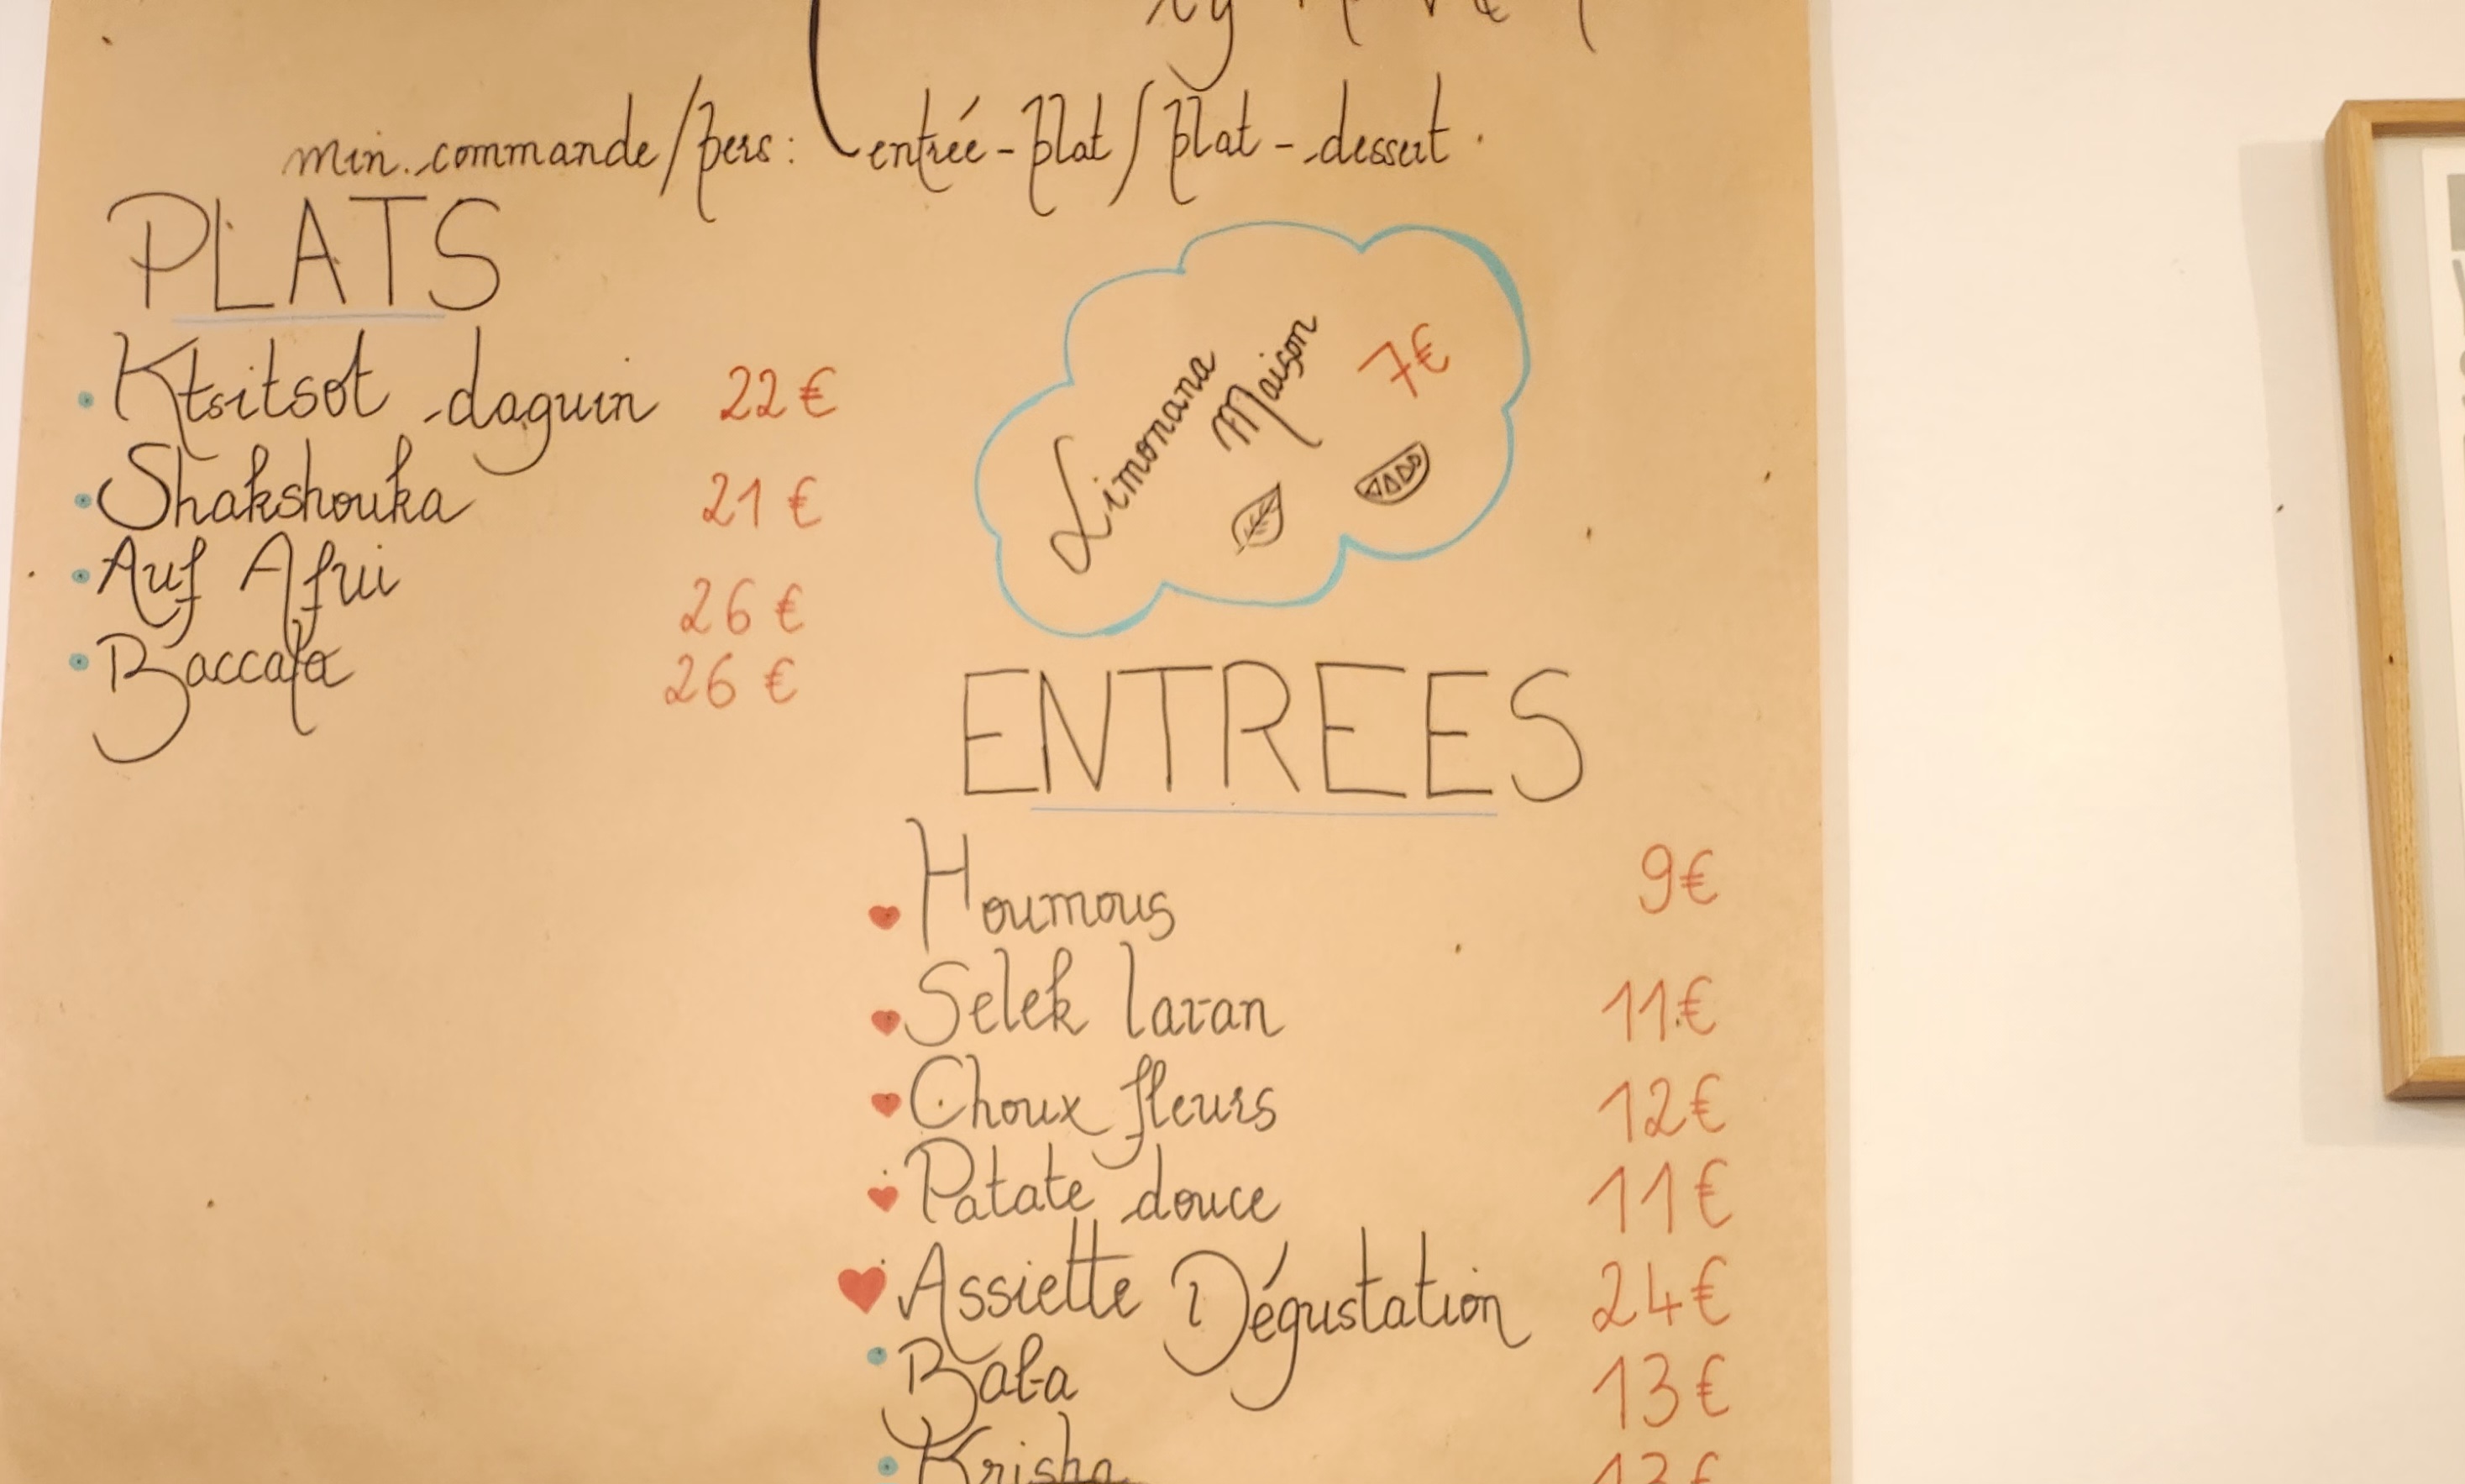 min. commande/pers: entrée-plat/plat-dessert.
PLATS
Ktsitsot daguin 22€
Shakshouka 21€
Auf Afui 26€
Baccala 26€
Limonana
Maison
7€
ENTREES
Houmous 9€
Selek lavan 11€
Choux fleurs 12€
Patate douce 11€
Assiette Dégustation 24€
Baba 13€
Krisha 13€